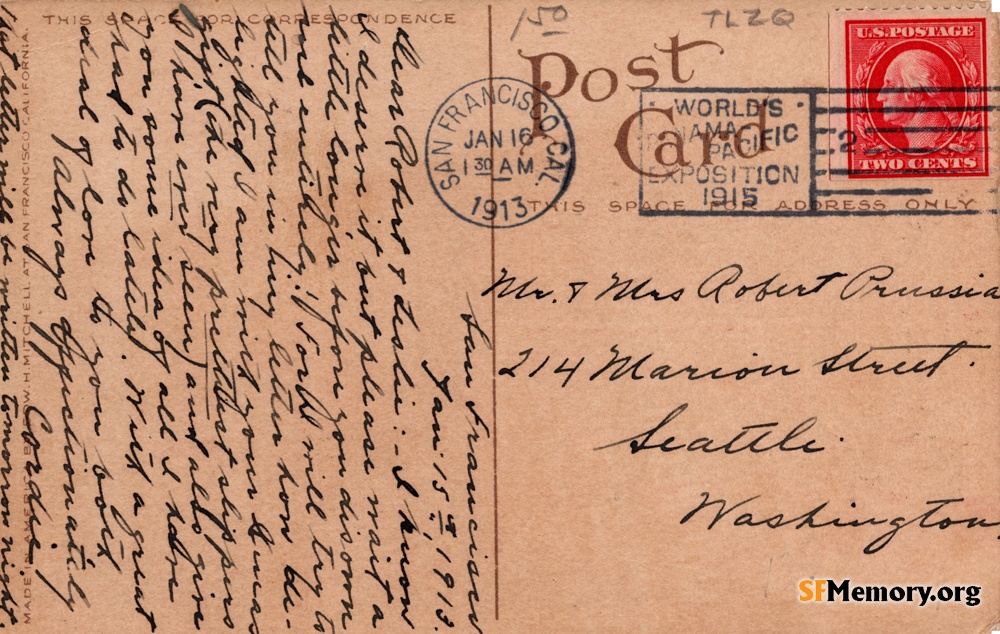 THIS SPACE FOR CORRESPONDENCE
150
TLZQ
Post
Card
U.S. POSTAGE
TWO CENTS
2
2
SAN FRANCISCO, CAL.
JAN 16
1 30 AM
1913
WORLD'S
PANAMA
PACIFIC
EXPOSITION
1915
THIS SPACE FOR ADDRESS ONLY
Mr. & Mrs Robert Prussia
214 Marion Street.
Seattle.
Washington
San Francisco
Jan. 15th, 1913.
Dear Robert & Leslie:- I know
I deserve it but please wait a
little longer before you disown
me entirely; for I will try to
tell you in my letter how de-
lighted I am with your Xmas
gift (the very prettiest slippers
I have ever seen) and also give
you some idea of all I have
had to do lately. With a great
deal of love to you both
Always affectionately
Cordie.
That letter will be written tomorrow night.
MADE IN AMERICA BY EDW. H. MITCHELL AT SAN FRANCISCO CALIFORNIA.
SFMemory.org